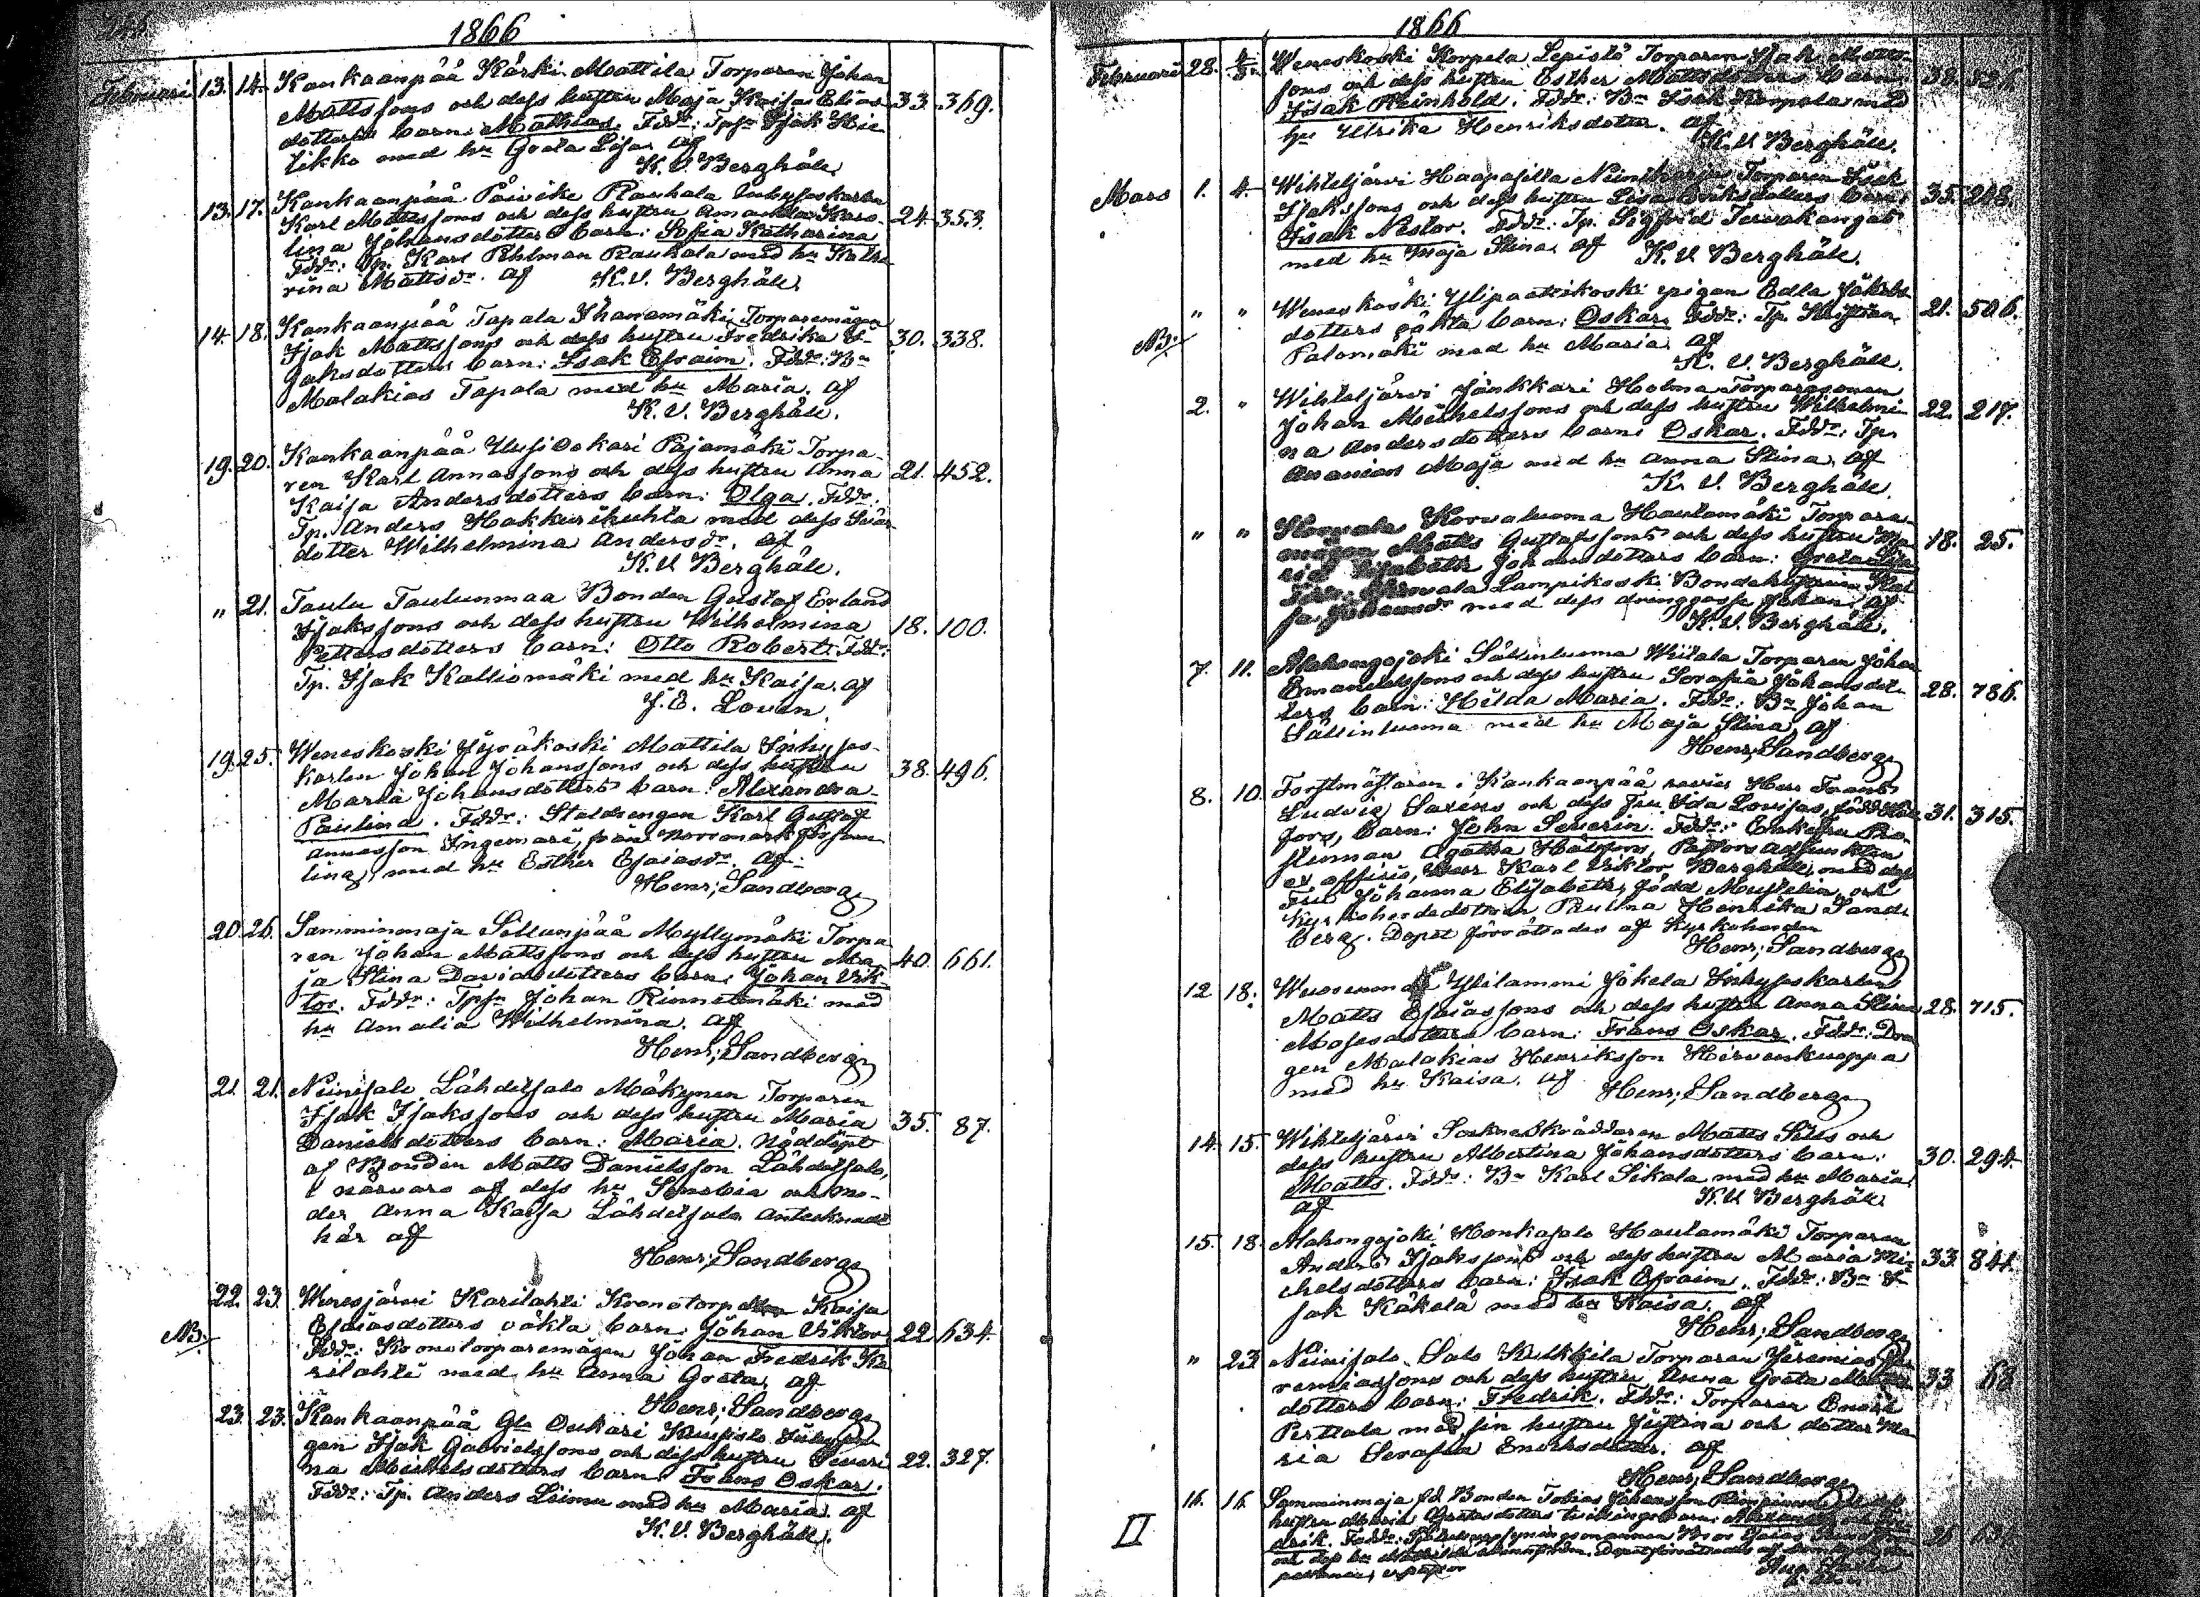 1866
Februari 13. 14. Kankaanpää Kärki Mattila Torparen Johan
Mattssons och dess hustru Maja Kaisa Elias- 33. 369.
dotters barn: Mathias. Fddr: Tpsn Isak Hie-
tikko med hu Greta Lisa. af
K. V. Berghäll.
13. 17. Kankaanpää Päivike Raukala Inhyseskarlen
Karl Mattssons och dess hustru Amanda Karo- 24. 353.
lina Johansdotters barn: Sofia Katharina
Fddr: Tp. Karl Pehlman Raukala med hu Katha-
rina Mattsdr. af K. V. Berghäll.
14. 18. Kankaanpää Tapala Ihanamäki Torparemågen
Isak Mattssons och dess hustru Fredrika I- 30. 338.
saksdotters barn: Isak Efraim. Fddr: Bn
Malakias Tapala med hu Maria. af
K. V. Berghäll.
19. 20. Kankaanpää Uusi Oukari Pajamäki Torpa-
ren Karl Annassons och dess hustru Anna 21. 452.
Kaisa Andersdotters barn: Olga. Fddr:
Tp. Anders Hakkurikuhta med dess Svär-
dotter Wilhelmina Andersdr. af
K. V. Berghäll.
" 21. Taulu Taulunmaa Bonden Gustaf Erland
Isakssons och dess hustru Wilhelmina 18. 100.
Pettersdotters barn: Otto Robert. Fddr:
Tp. Isak Kalliomäki med hu Kaisa. af
J. E. Loven.
19. 25. Weneskoski Jyräkoski Mattila Inhyses-
karlen Johan Johanssons och dess hustru 38. 496.
Maria Johansdotters barn: Alexandra
Paulina. Fddr: Staldrengen Karl Gustaf
Annasson Ingemari, från Norrmark försam-
ling, med hu Esther Esaiasdr. af
Henr; Sandberg
20. 26. Samminmaja Sillanpää Myllymäki Torpa-
ren Johan Mattssons och dess hustru Ma- 40. 661.
ja Stina Davidsdotters barn: Johan Vik-
tor. Fddr: Tpsn Johan Rinnetmäki med
hu Amalia Wilhelmina. af
Henr; Sandberg
21. 21. Niinisalo Lähdesalo Mäkynen Torparen
Isak Isakssons och dess hustru Maria 35. 87.
Danielsdotters barn: Maria. Nöddöpt
af Bonden Matts Danielsson Lähdesalo,
i närvaro af dess hu Senobia och mo-
der Anna Kaisa Lähdesalo. Antecknadt
här af
Henr; Sandberg
22. 23. Wenesjärvi Karilahti Kronotorp Kaisa
NB. Esaiasdotters oäkta barn: Johan Viktor 22. 634.
Fddr: Kronotorparemågen Johan Fredrik Ka-
rilahti med hu Anna Greta. af
Henr; Sandberg
23. 23. Kankaanpää Gla Oukari Kuusisto
gen Isak Gabrielssons och dess hustru Severi- 22. 327.
na Michelsdotters barn: Frans Oskar.
Fddr: Tp. Anders Liimu med hu Maria. af
K. V. Berghäll.
1866
Februarii 28. 4/3. Weneskoski Korpela Lepistö Torparen Isak Matts-
sons och dess hustru Esther Mattsdotters barn: 38. 526.
Isak Reinhold. Fddr: Bn Isak Korpela med
hu Ulrika Henriksdotter. af
K. V. Berghäll.
Mars 1. 4. Wihteljärvi Haapasilta Torparen Isak
Isakssons och dess hustru Lisa Eriksdotters barn: 35. 248.
Isak Nestor. Fddr: Tp. Sigfrid Teurakangas
med hu Maja Stina. af K. V. Berghäll.
" " Weneskoski Ylipaattikoski pigan Edla Jakobs- 21. 506.
NB. dotters oäkta barn: Oskar. Fddr: Tp. Kristian
Palomäki med hu Maria. af
K. V. Berghäll.
2. " Wihteljärvi Jänkkari Holma Torparesonen
Johan Michelssons och dess hustru Wilhelmi- 22. 217.
na Andersdotters barn: Oskar. Fddr: Tp.
Ananias Maja med hu Anna Stina. af
K. V. Berghäll.
" " Korvaluoma Hautamäki Torpare-
mågen Matts Gustafssons och dess hustru Ma- 18. 25.
ria Elisabeth Johansdotters barn: Greta Lisa
Fddr: Lampikoski Bondehustrun Kai-
sa Johansdr med dess drenggosse Johan. af
K. V. Berghäll.
7. 11. Alahongojoki Sälinluoma Wiitala Torparen Johan
Emanuelssons och dess hustru Serafia Johansdot- 28. 786.
ters barn: Hilda Maria. Fddr: Bn Johan
Sälinluoma med hu Maja Stina. af
Henr; Sandberg
8. 10. Forstmästaren i Kankaanpää revier Herr Frans
Ludvig Saxens och dess Fru Ida Lovisas, född 31. 315.
fors, barn: John Severin. Fddr: Enkefru Pro-
stinnan Agatha Hällfors, Pastors adjunkten
ex officio, Herr Karl Viktor Berghäll, med dess
Fru Johanna Elisabeth, född Mustelin, och
Kyrkoherdedottren Paulina Henrika Sand-
berg. Dopet förrättades af Kyrkoherden
Henr; Sandberg
12. 18. Ylilammi Jokela Inhyseskarlen
Matts Esaiassons och dess hustru Anna Stina 28. 715.
Mosesdotters barn: Frans Oskar. Fddr: Dren-
gen Malakias Henriksson Hirvenkuoppa
med hu Kaisa. af Henr; Sandberg
14. 15. Wihteljärvi Sockneskräddaren Matts Sills och
dess hustru Albertina Johansdotters barn: 30. 294.
Matts. Fddr: Bn Karl Sikala med hu Maria.
af K. V. Berghäll.
15. 18. Alahongojoki Honkasalo Hautamäki Torparen
Anders Isakssons och dess hustru Maria Mi- 33. 841.
chelsdotters barn: Isak Efraim. Fddr: Bn I-
sak Käkelä med hu Kaisa. af
Henr; Sandberg
" 23. Niinisalo Salo Kulkkila Torparen Jeremias Je-
remiassons och dess hustru Anna Greta Matts- 33. 68.
dotters barn: Fredrik. Fddr: Torparen Enok
Perttala med sin hustru Justina och dotter Ma-
ria Serafia Enoksdotter. af
Henr; Sandberg
16. 16. Samminmaja fd Bonden Tobias Johansson
II hustru Maria Gretasdotters tvillingebarn:
drik. Fddr: